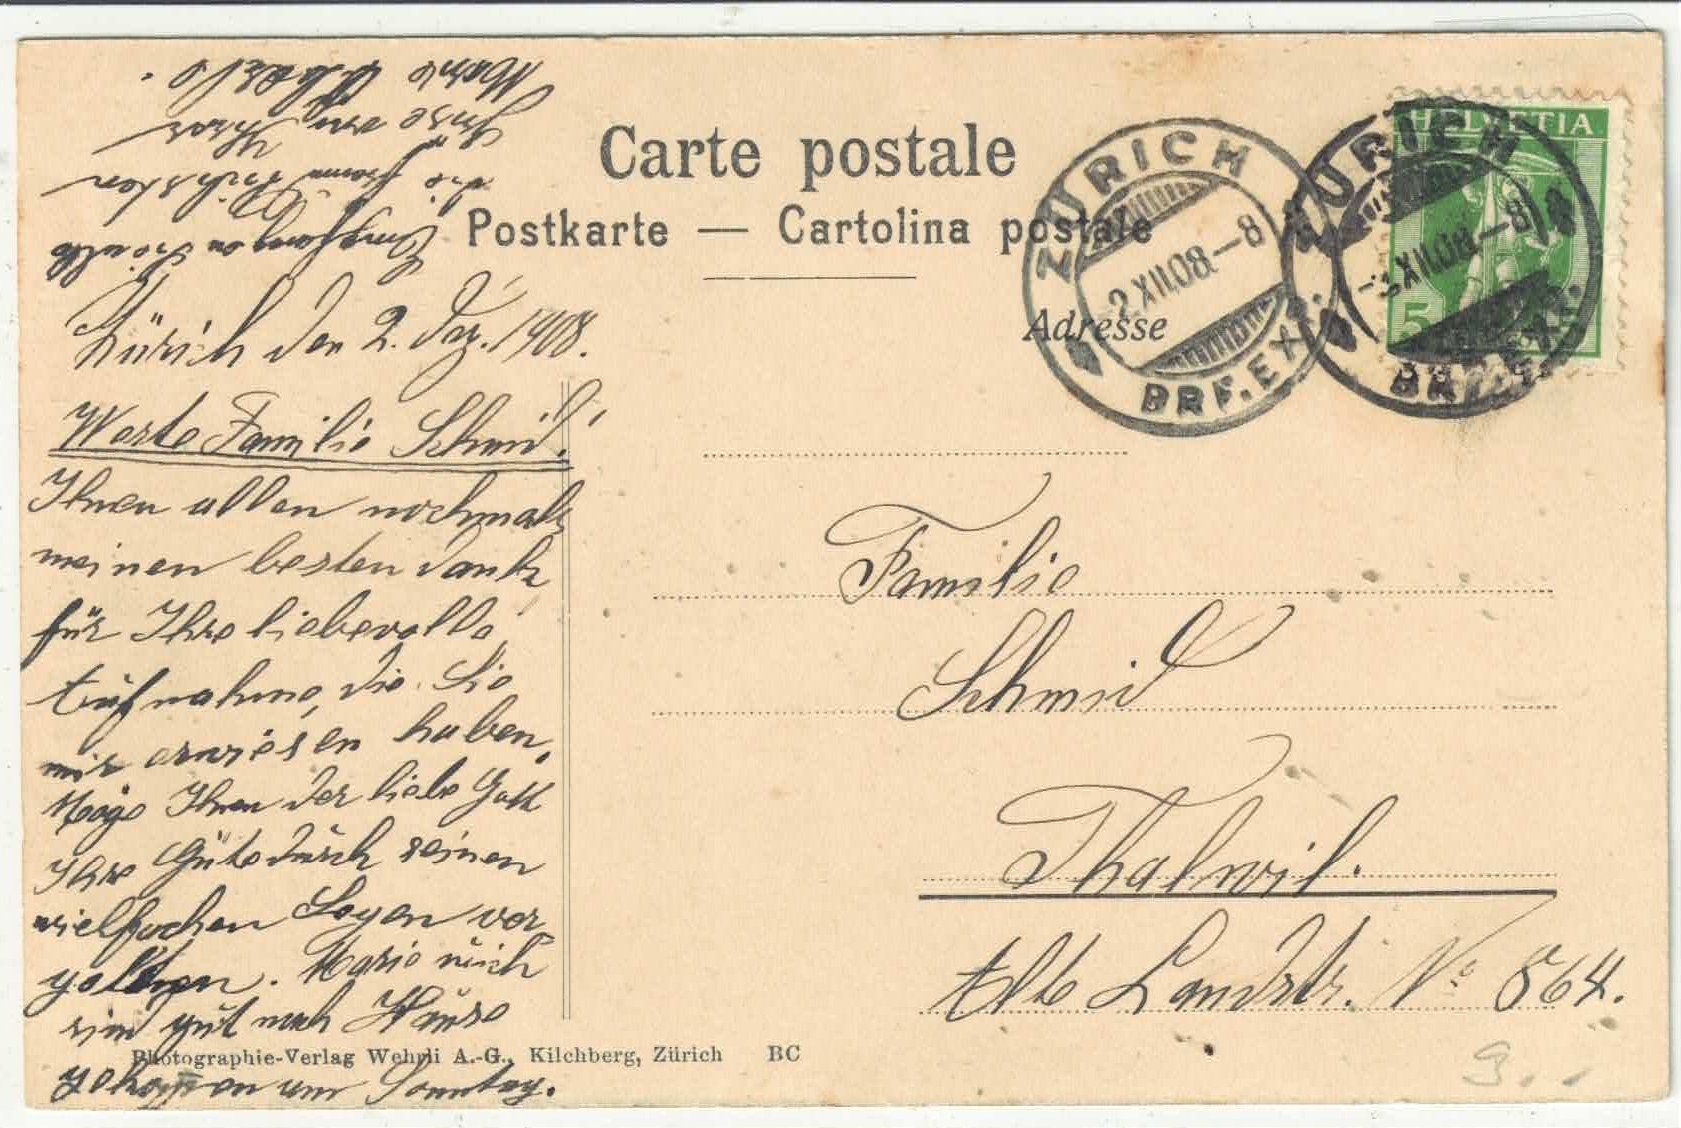 Carte postale
Postkarte — Cartolina postale
Adresse
HELVETIA
5
ZÜRICH
2.XII.08.–8
BRF.EXP.
ZÜRICH
2.XII.08.–8
BRF.EXP.
Zürich den 2. Dez. 1908.
Werte Familie Schmid!
Ihnen allen nochmals
meinen besten Dank,
für Ihre liebevolle
Aufnahme, die Sie
mir erwiesen haben.
Möge Ihnen der liebe Gott
Ihre Güte durch seinen
vielfachen Segen ver
gelten. Marie u. ich
sind gut nach Hause
gekommen am Sonntag.
Empfangen Sie alle
die
Grüsse von Ihrer
Marie
Familie
Schmid
Thalwil.
Alte Landstr. No 564.
Photographie-Verlag Wehrli A.-G., Kilchberg, Zürich BC